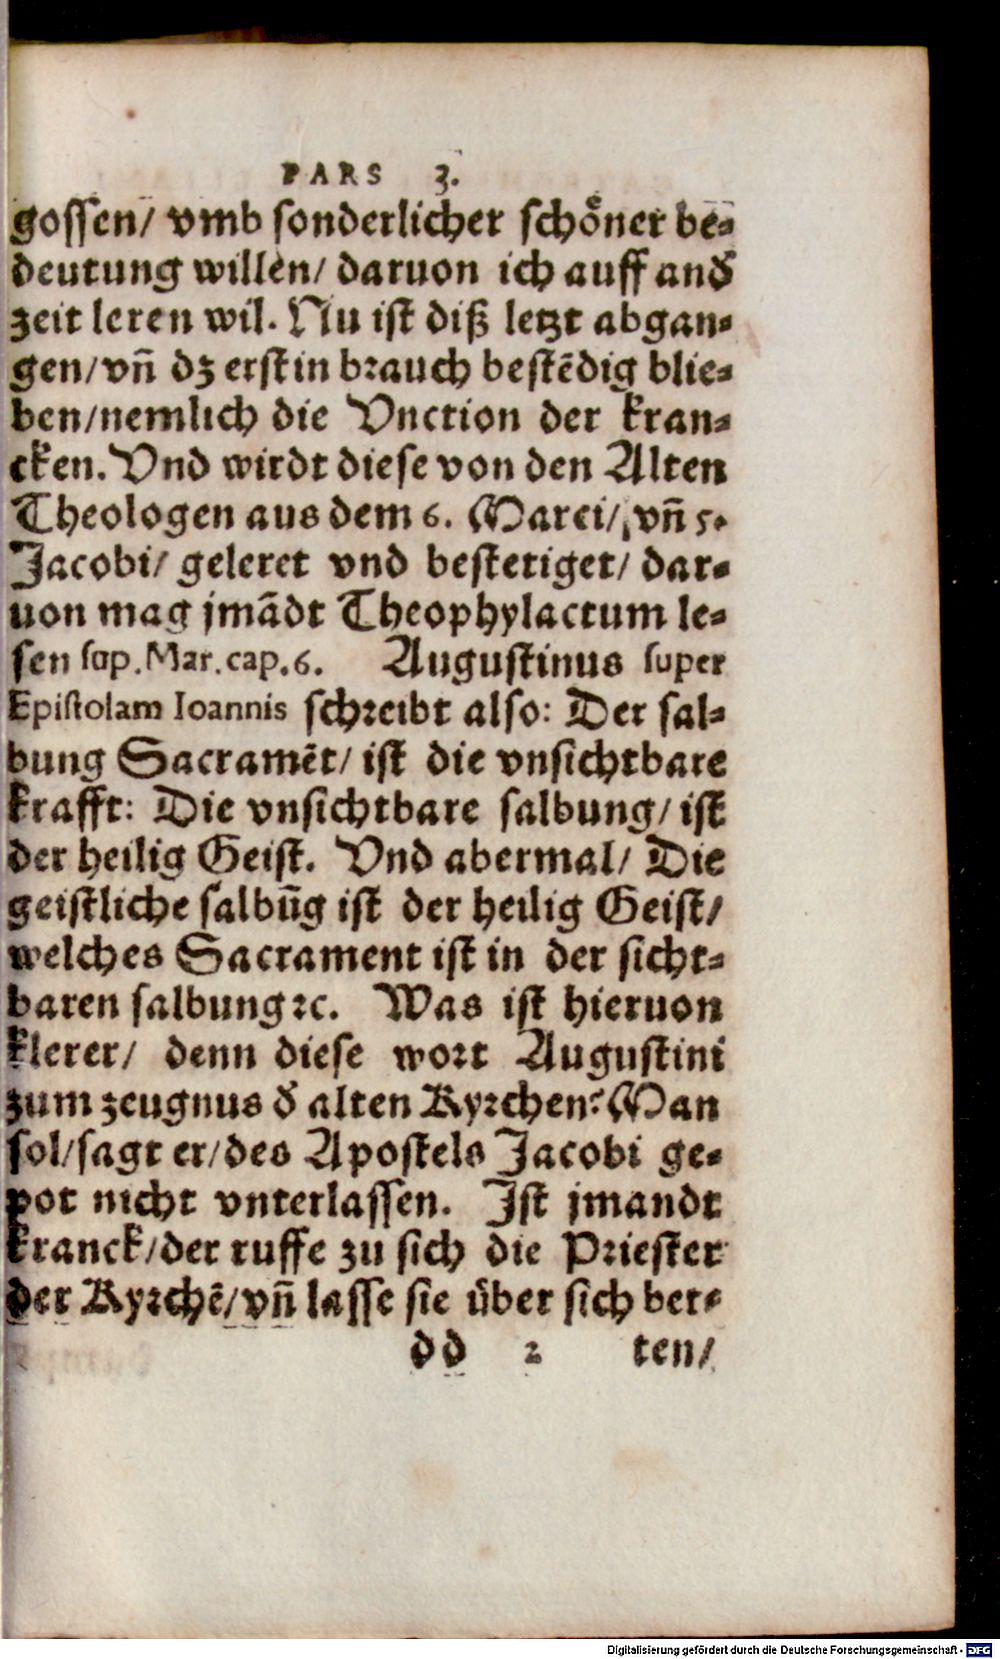 PARS 3.
gossen/ vmb sonderlicher schöner be-
deutung willen/ daruon ich auff and̄
zeit leren wil. Nu ist diß letzt abgan-
gen/vn̄ dz erst in brauch bestēdig blie-
ben/nemlich die Vnction der kran-
cken. Vnd wirdt diese von den Alten
Theologen aus dem 6. Marci/ vn̄ 5.
Jacobi/ geleret vnd bestetiget/ dar-
uon mag jmādt Theophylactum le-
sen sup. Mar. cap. 6. Augustinus super
Epistolam Ioannis schreibt also: Der sal-
bung Sacramēt/ ist die vnsichtbare
krafft: Die vnsichtbare salbung/ ist
der heilig Geist. Vnd abermal/ Die
geistliche salbūg ist der heilig Geist/
welches Sacrament ist in der sicht-
baren salbung ꝛc. Was ist hieruon
klerer/ denn diese wort Augustini
zum zeugnus d̄ alten Kyrchen? Man
sol/sagt er/des Apostels Jacobi ge-
pot nicht vnterlassen. Ist jmandt
kranck/der ruffe zu sich die Priester
der Kyrchē/vn̄ lasse sie über sich bet-
dd 2 ten/
Digitalisierung gefördert durch die Deutsche Forschungsgemeinschaft - DFG